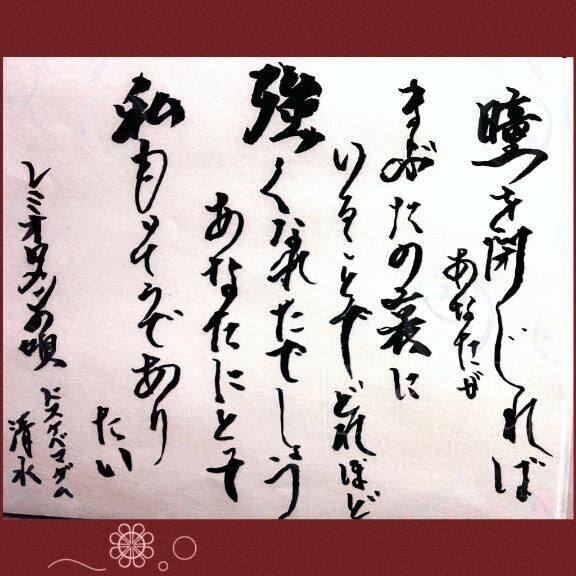 瞳を閉じれば
あなたが
まぶたの裏に
いることでどれほど
強くなれたでしょう
あなたにとって
私もそうであり
たい
レミオロメンの唄
ドスケベマダム
清水